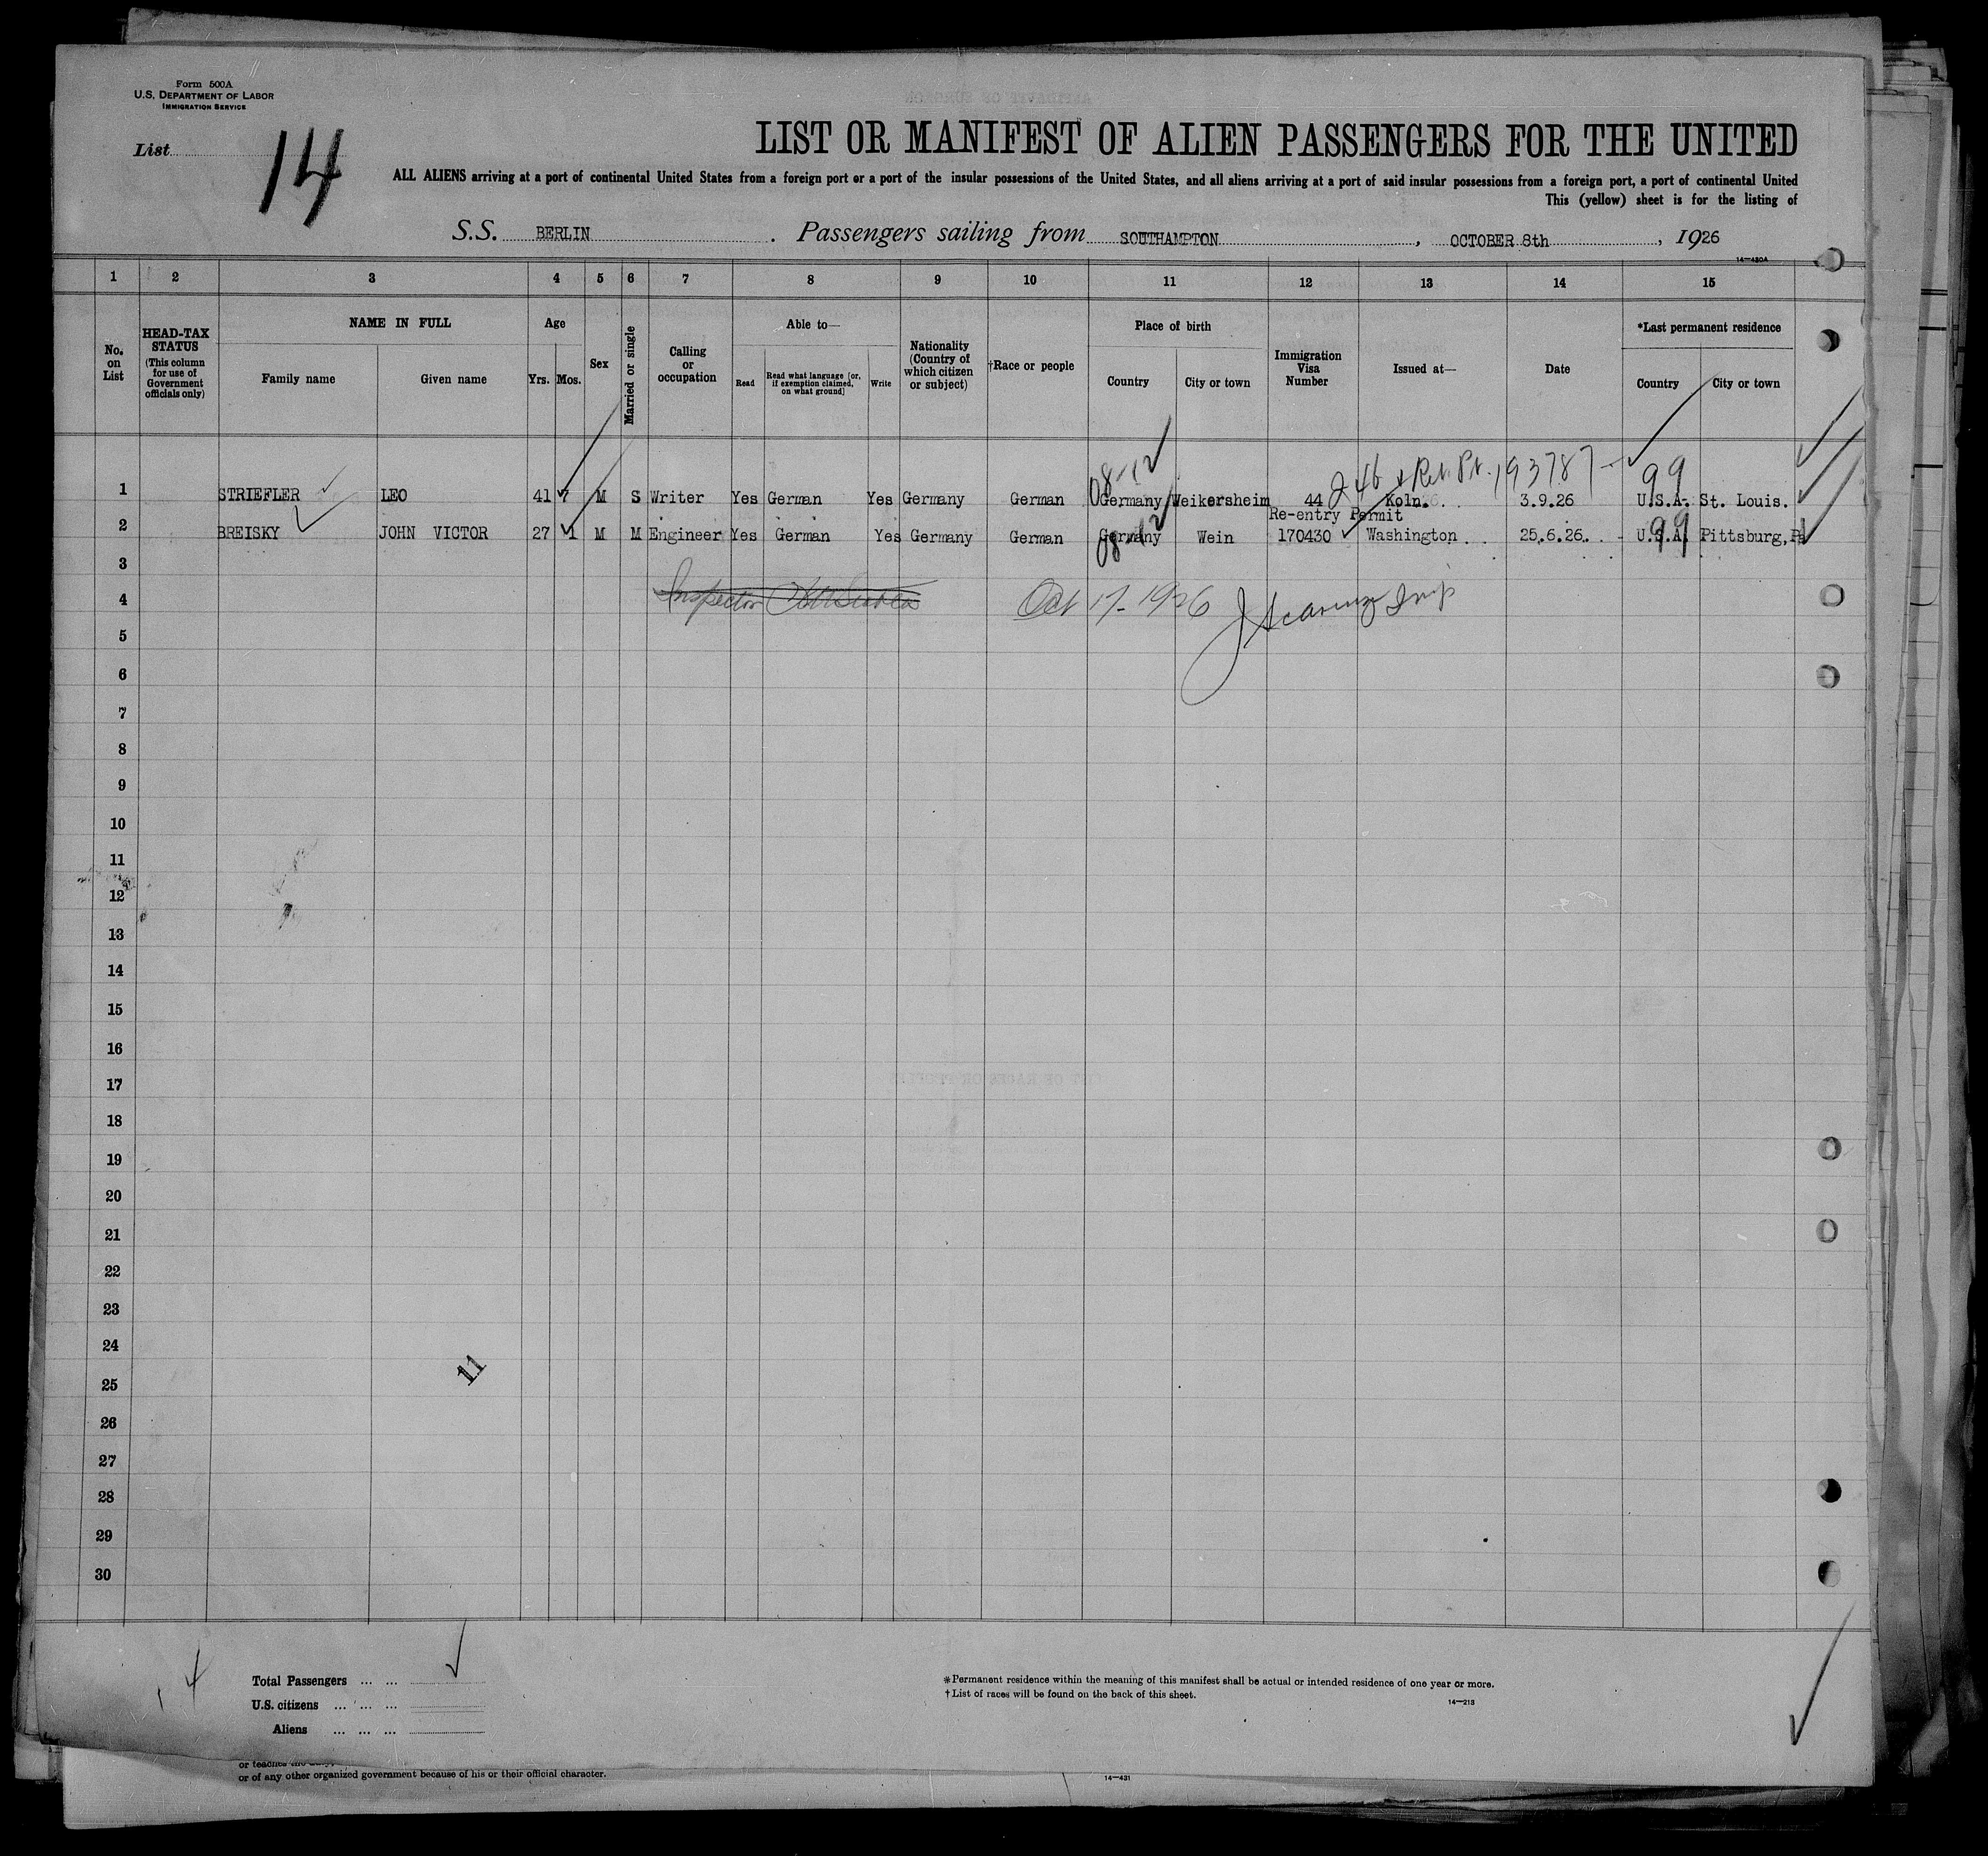 Form 500A
U.S. DEPARTMENT OF LABOR
IMMIGRATION SERVICE
List 14
LIST OR MANIFEST OF ALIEN PASSENGERS FOR THE UNITED
ALL ALIENS arriving at a port of continental United States from a foreign port or a port of the insular possessions of the United States, and all aliens arriving at a port of said insular possessions from a foreign port, a port of continental United
This (yellow) sheet is for the listing of
S.S. BERLIN. Passengers sailing from SOUTHAMPTON, OCTOBER 8th, 1926
14—430A
1 2 3 4 5 6 7 8 9 10 11 12 13 14 15
No. on List
HEAD-TAX STATUS (This column for use of Government officials only)
NAME IN FULL
Family name
Given name
Age
Yrs. Mos.
Sex
Married or single
Calling or occupation
Able to—
Read
Read what language [or, if exemption claimed, on what ground]
Write
Nationality (Country of which citizen or subject)
†Race or people
Place of birth
Country
City or town
Immigration Visa Number
Issued at—
Date
*Last permanent residence
Country
City or town
08-12 246 + Ret. Pt. 193787 99
1 STRIEFLER LEO 41 7 M S Writer Yes German Yes Germany German Germany Weikersheim 44 Koln. 3.9.26 U.S.A. St. Louis.
Re-entry Permit
2 BREISKY JOHN VICTOR 27 1 M M Engineer Yes German Yes Germany German Germany Wein 170430 Washington 25.6.26. U.S.A. Pittsburg, Pa
08-12 99
3
4 Inspector Oct 17-1926 Insp
5
6
7
8
9
10
11
12
13
14
15
16
17
18
19
20
21
22
23
24
25
26
27
28
29
30
11
Total Passengers ... ...
U.S. citizens ... ... ...
Aliens ... ... ...
14
*Permanent residence within the meaning of this manifest shall be actual or intended residence of one year or more.
†List of races will be found on the back of this sheet.
14—213
or teaches
or of any other organized government because of his or their official character.
14—431